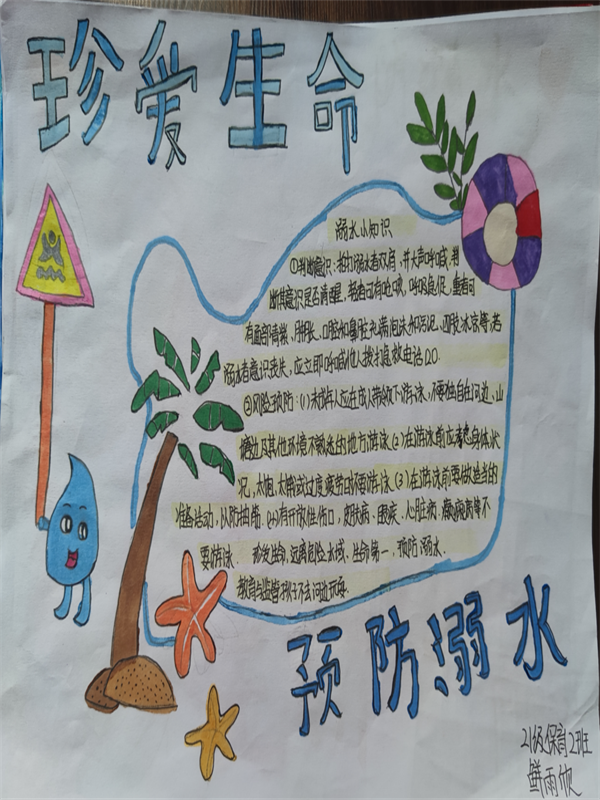 珍爱生命
溺水小知识
①判断意识:拍打溺水者双肩,并大声呼喊,判
断其意识是否清醒,轻者可有呛咳,呼吸急促,重者可
有面部青紫、肿胀、口腔和鼻腔充满泡沫和污泥,四肢冰凉等,若
溺水者意识丧失,应立即呼喊他人拨打急救电话120.
②风险预防:(1)未成年人应在成人带领下游泳,不要独自在河边、山
塘边及其他环境不熟悉的地方游泳(2)在游泳前应考虑身体状
况,太饱、太饿或过度疲劳时不要游泳.(3)在游泳前要做适当的
准备活动,以防抽筋.(4)有开放性伤口,皮肤病、眼疾、心脏病、癫痫病等不
要游泳. 珍爱生命,远离危险水域,生命第一,预防溺水.
教育与监督孩子不去河边玩耍.
预防溺水
21级保育2班
鲜雨欣